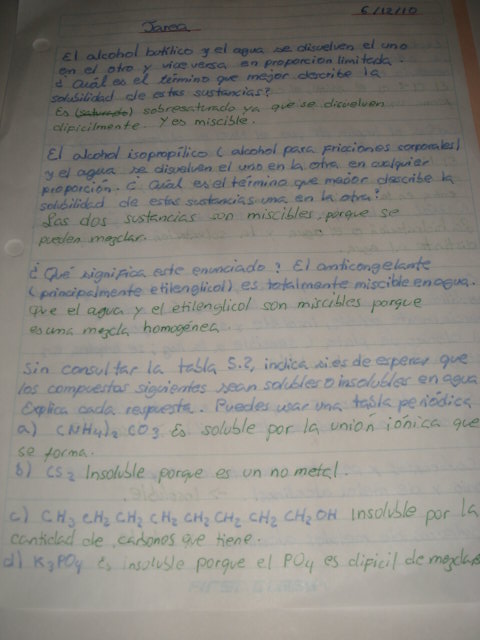 6/12/10
Tarea
El alcohol butílico y el agua se disuelven el uno
en el otro y viceversa en proporción limitada.
¿Cuál es el término que mejor describe la
solubilidad de estas sustancias?
Es (saturado) sobresaturado ya que se disuelven
dipicilmente. Y es miscible.
El alcohol isopropílico (alcohol para fricciones corporales)
y el agua se disuelven el uno en la otra en cualquier
proporción. ¿Cuál es el término que mejor describe la
solubilidad de estas sustancias una en la otra?
Las dos sustancias son miscibles, porque se
pueden mezclar.
¿Qué significa este enunciado? El anticongelante
(principalmente etilenglicol) es totalmente miscible en agua.
Que el agua y el etilenglicol son miscibles porque
es una mezcla homogénea.
Sin consultar la tabla 5.2, indica si es de esperar que
los compuestos siguientes sean solubles o insolubles en agua
Explica cada respuesta. Puedes usar una tabla periódica
a) (NH4)2 CO3 Es soluble por la unión iónica que
se forma.
b) CS2 Insoluble porque es un no metal.
c) CH3 CH2 CH2 CH2 CH2 CH2 CH2 CH2 OH Insoluble por la
cantidad de carbonos que tiene.
d) K3PO4 Es insoluble porque el PO4 es dipicil de mezclar